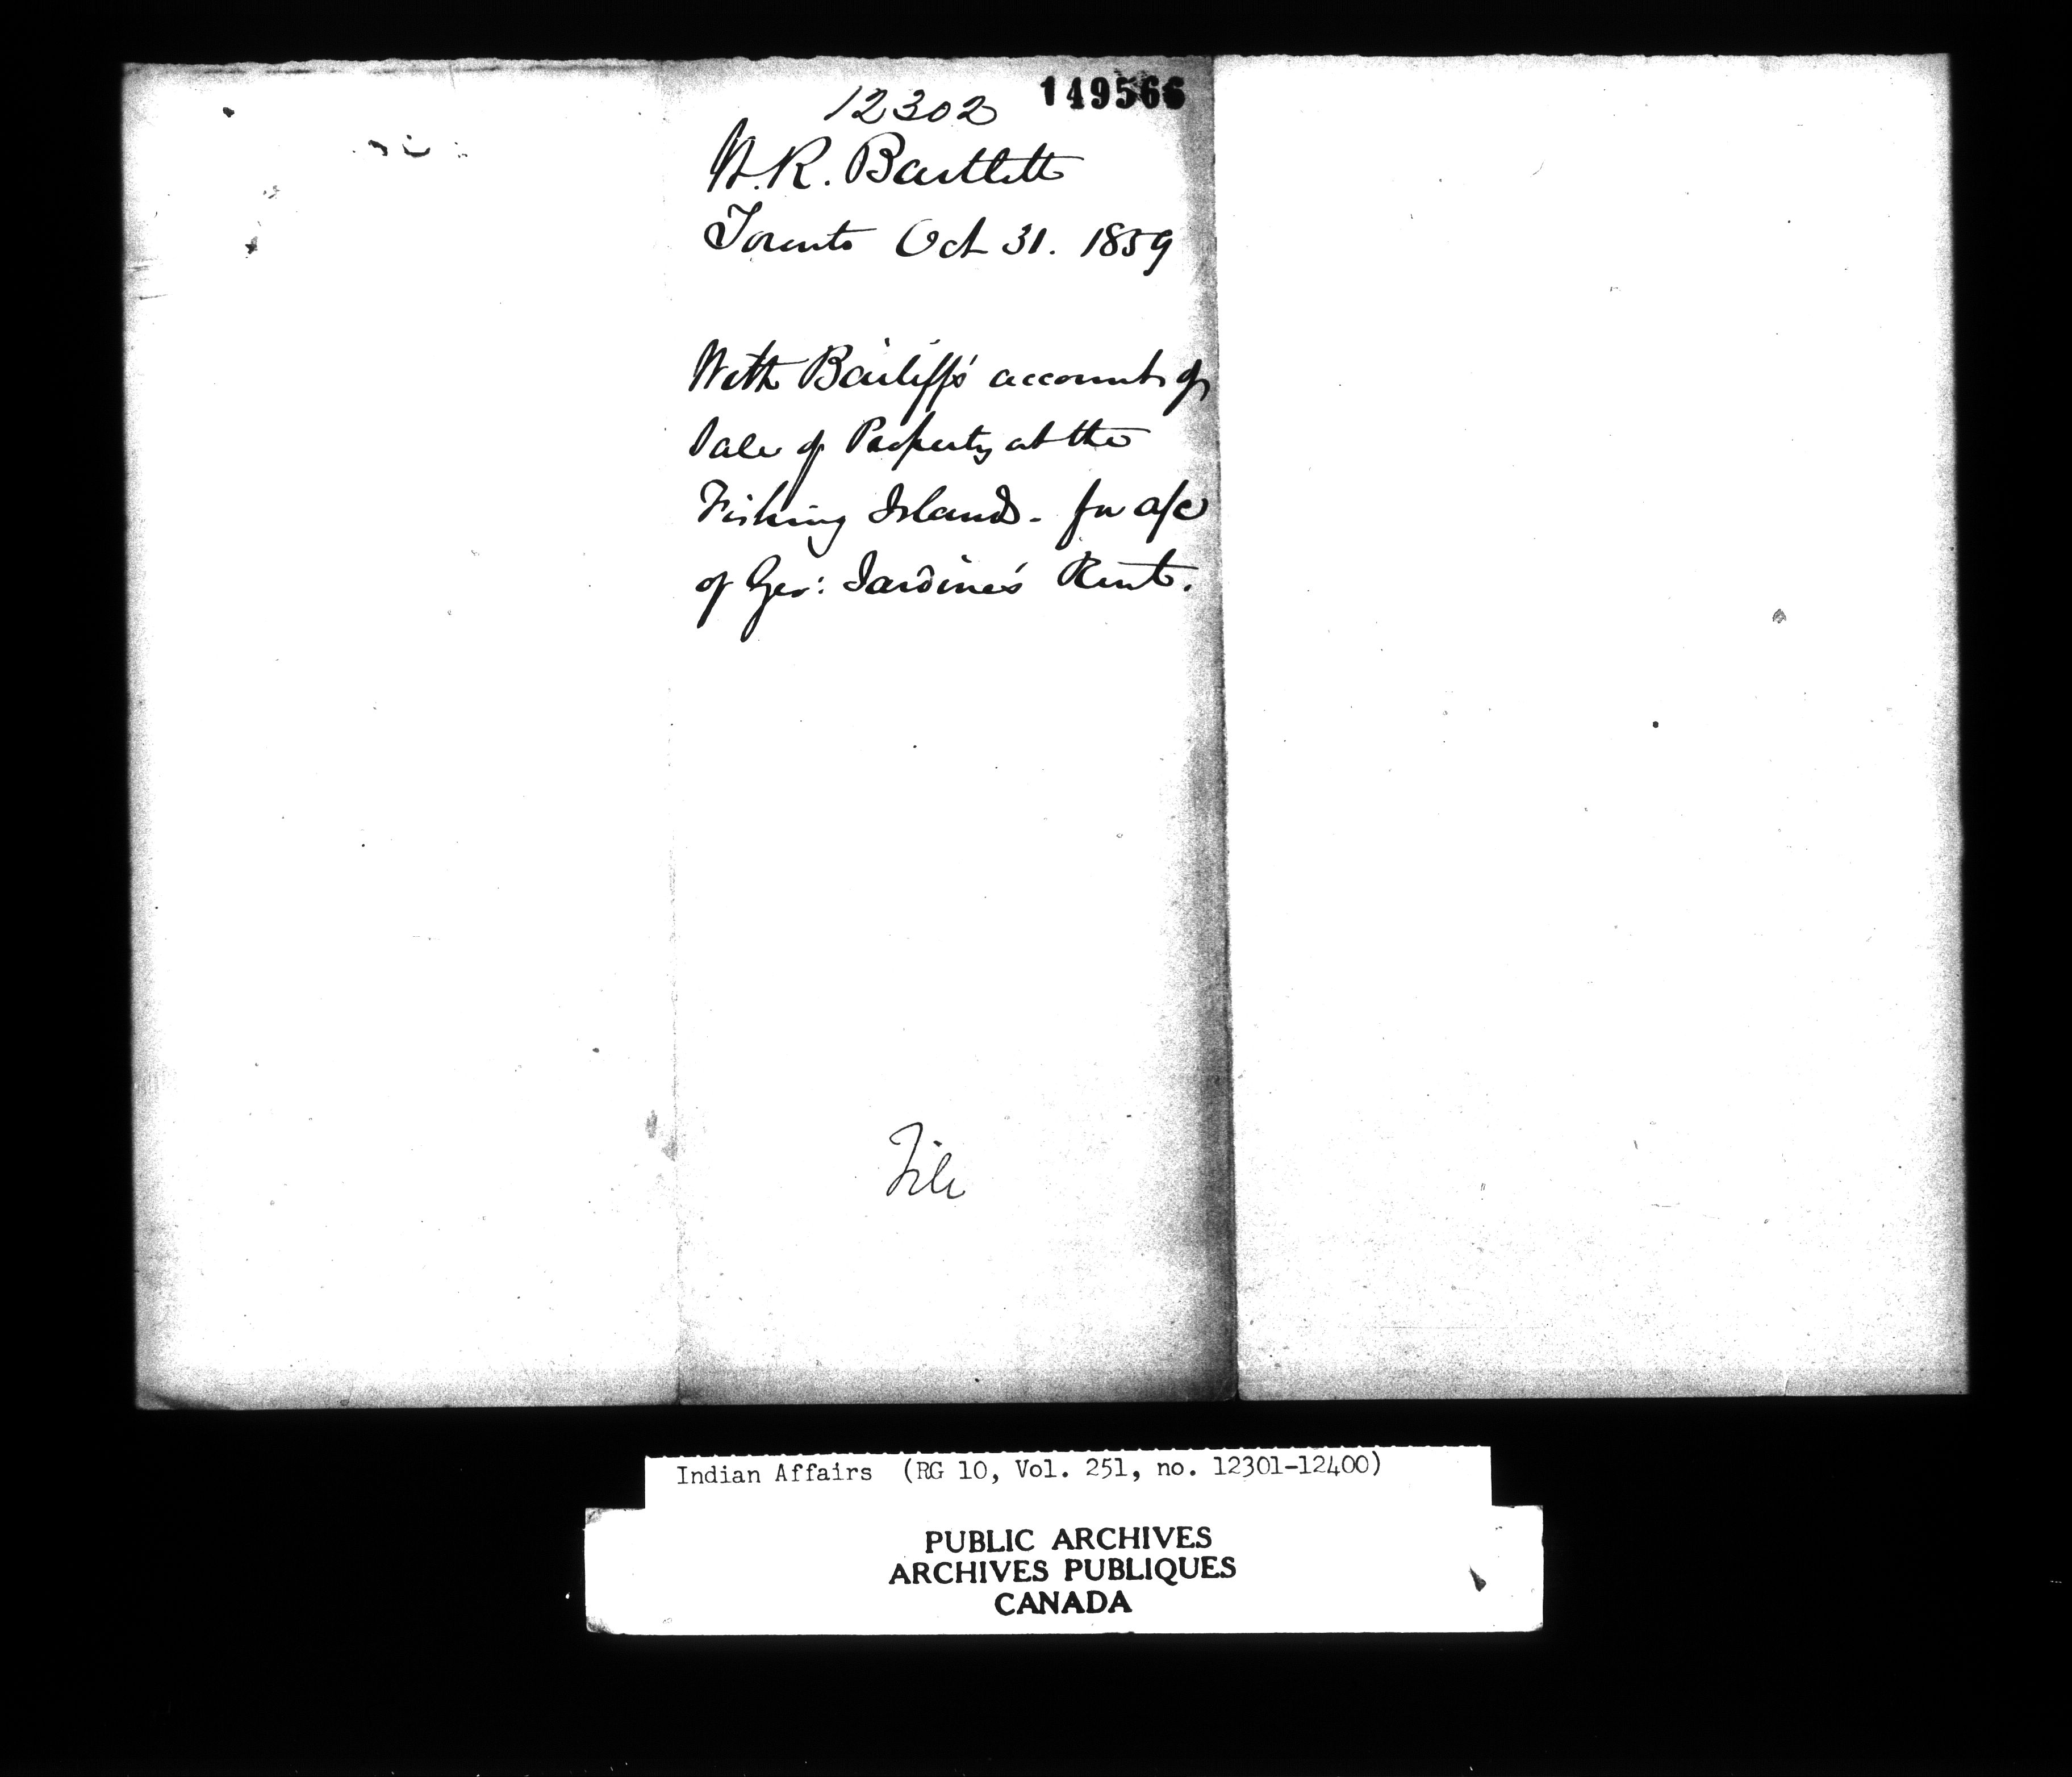 149566
12302
W.R. Bartlett
Toronto Oct 31. 1859
With Bailiff's account of
Sale of Property at the
Fishing Islands - for a/c
of Geo: Jardine's Rent.
File
Indian Affairs (RG 10, Vol. 251, no. 12301-12400)
PUBLIC ARCHIVES
ARCHIVES PUBLIQUES
CANADA